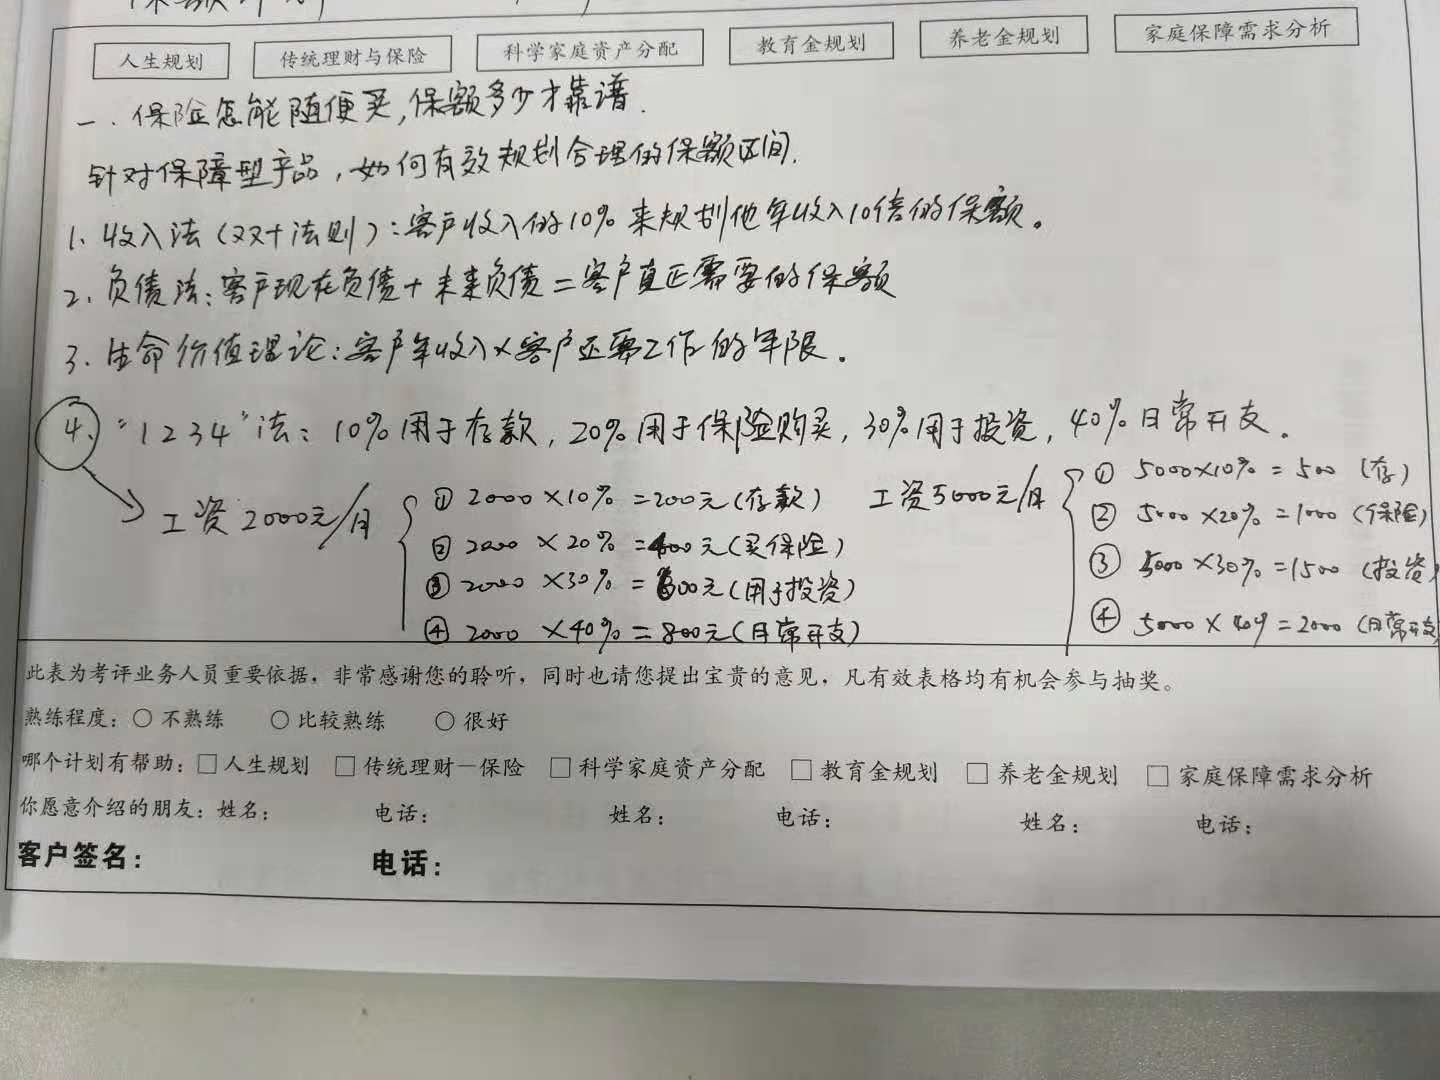 人生规划 传统理财与保险 科学家庭资产分配 教育金规划 养老金规划 家庭保障需求分析
一. 保险怎能随便买,保额多少才靠谱.
针对保障型产品,如何有效规划合理的保额区间.
1. 收入法(双十法则):客户收入的10%来规划他年收入10倍的保额。
2. 负债法:客户现在负债+未来负债=客户真正需要的保额
3. 生命价值理论:客户年收入×客户还需工作的年限。
4. “1234”法:10%用于存款,20%用于保险购买,30%用于投资,40%日常开支。
工资2000元/月
① 2000×10%=200元(存款)
② 2000×20%=400元(买保险)
③ 2000×30%=600元(用于投资)
④ 2000×40%=800元(日常开支)
工资5000元/月
① 5000×10%=500(存)
② 5000×20%=1000(保险)
③ 5000×30%=1500(投资)
④ 5000×40%=2000(日常开支)
此表为考评业务人员重要依据,非常感谢您的聆听,同时也请您提出宝贵的意见,凡有效表格均有机会参与抽奖。
熟练程度:○ 不熟练 ○ 比较熟练 ○ 很好
哪个计划有帮助:□人生规划 □传统理财—保险 □科学家庭资产分配 □教育金规划 □养老金规划 □家庭保障需求分析
你愿意介绍的朋友:姓名: 电话: 姓名: 电话: 姓名: 电话:
客户签名: 电话: